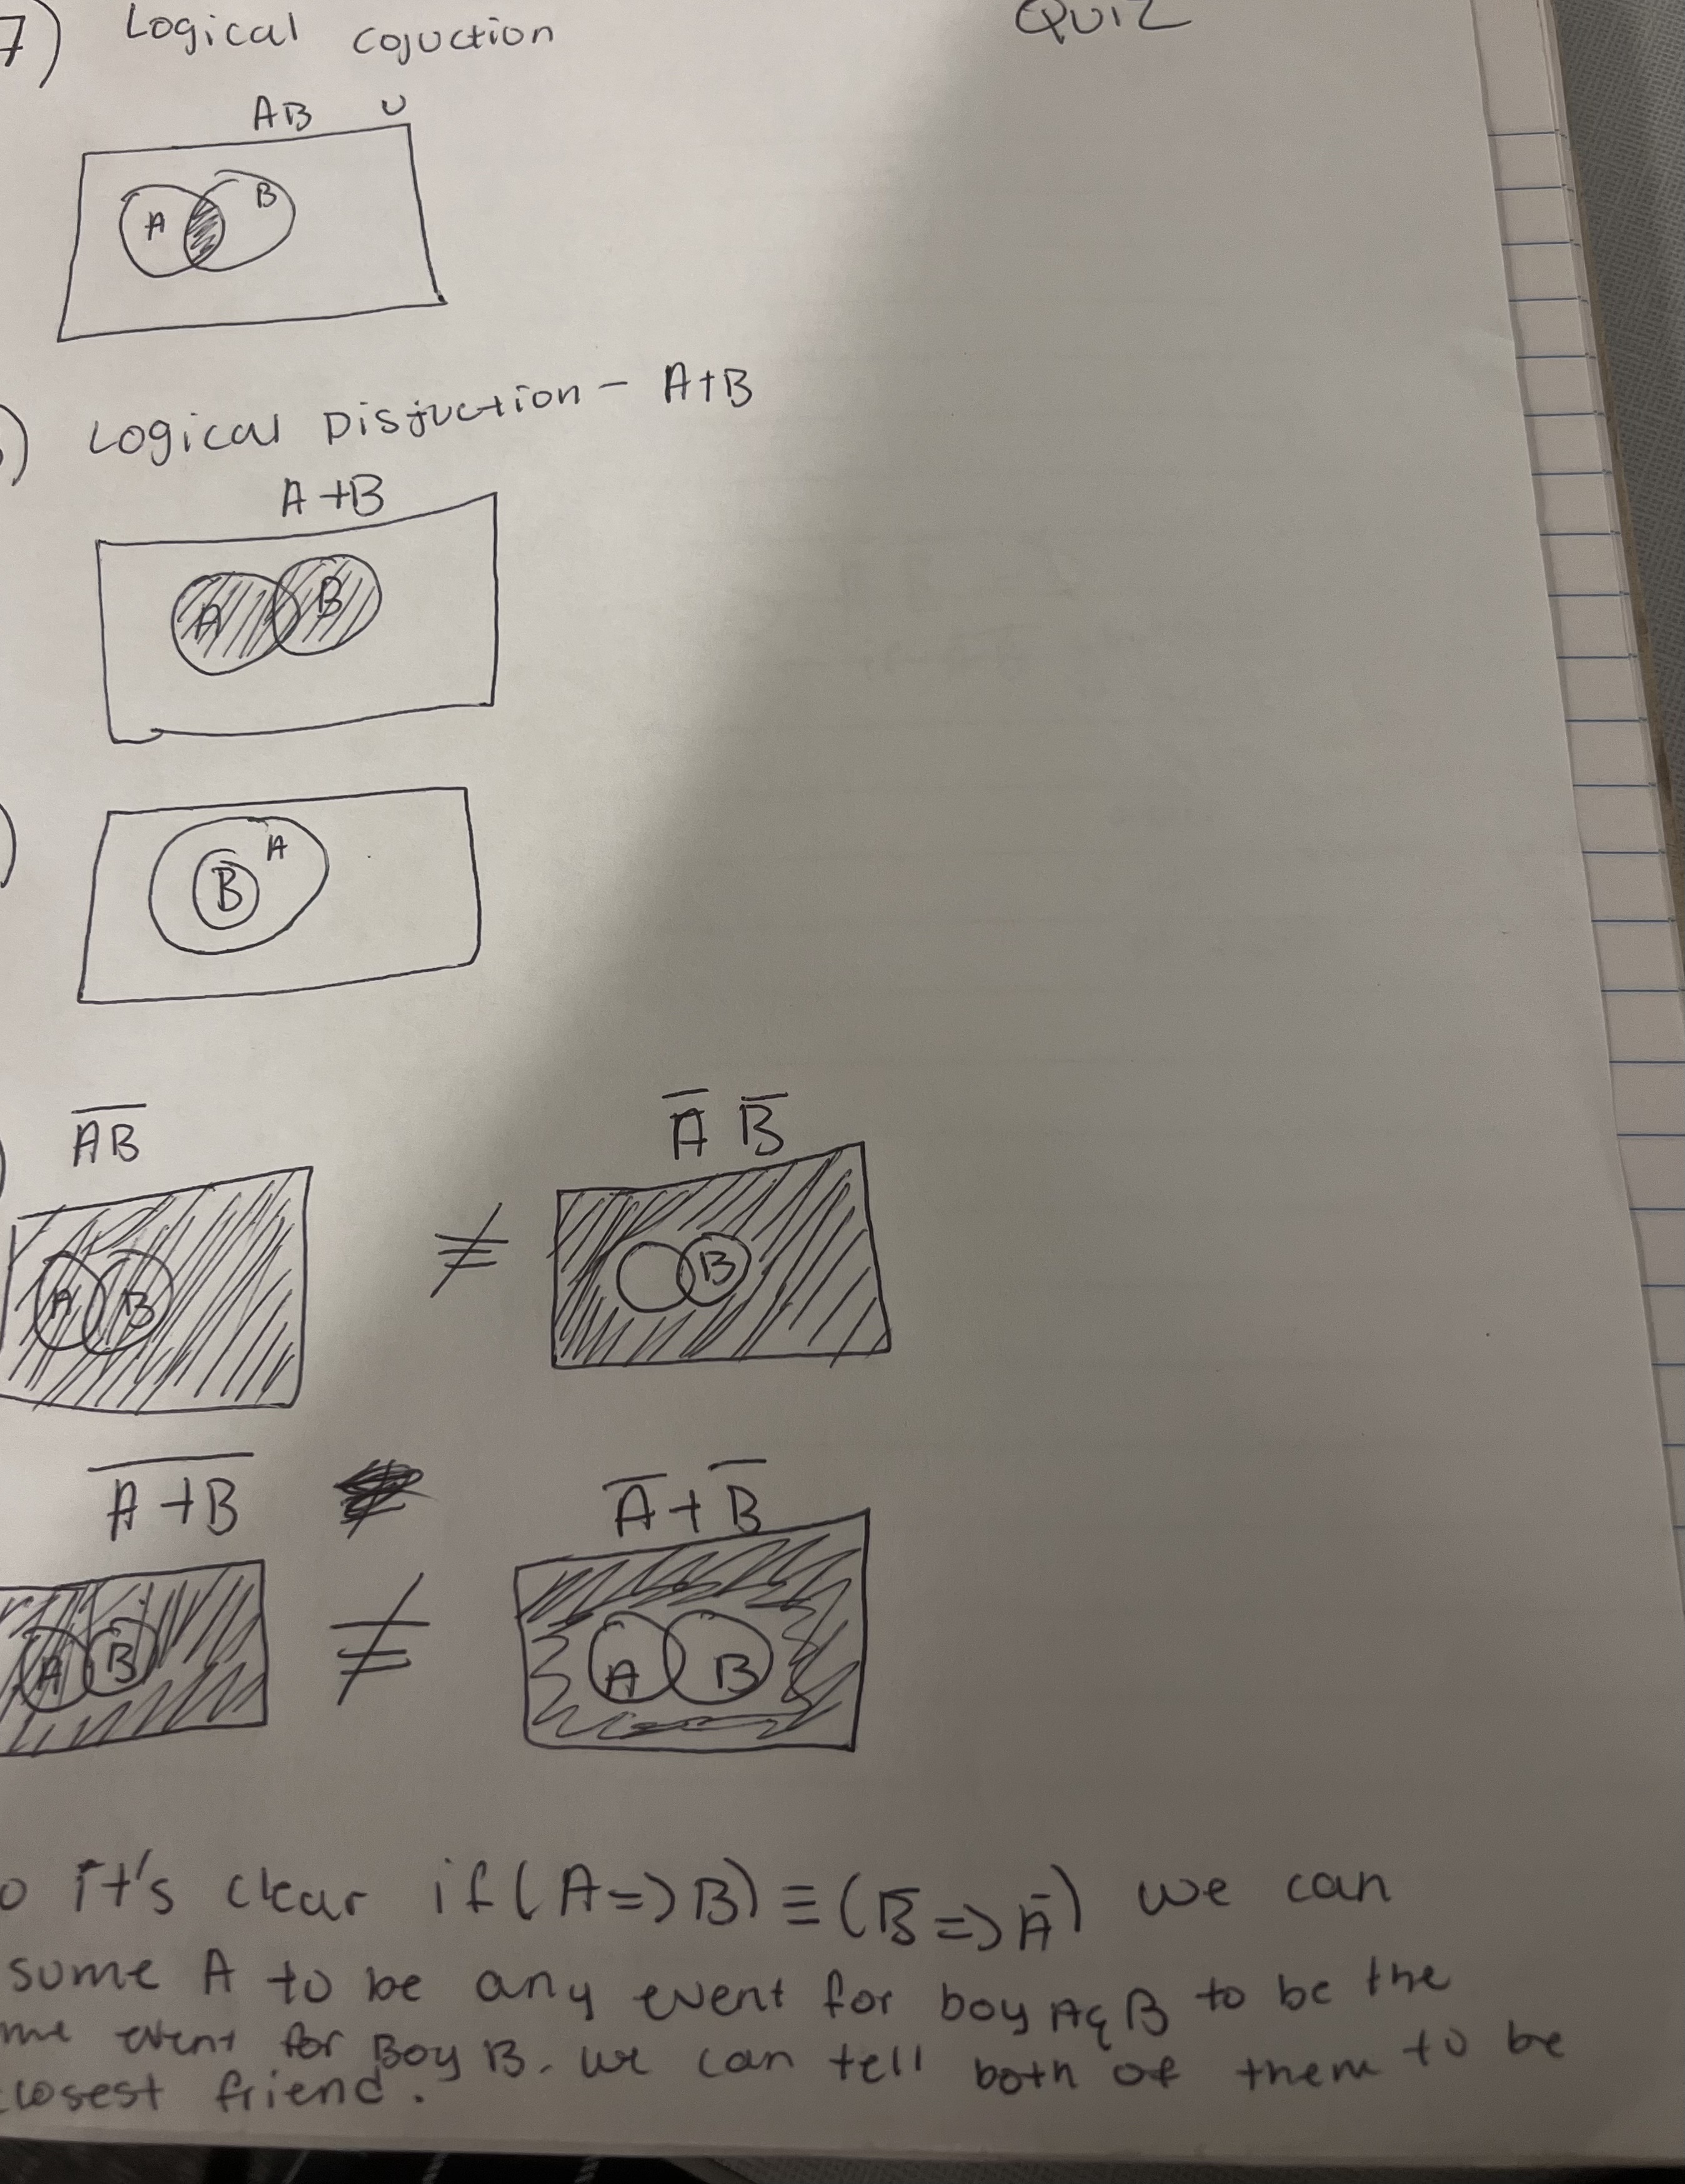 7) Logical cojuction
QUIZ
AB U
A B
) Logical Disjuction - A+B
A+B
A B
)
A
B
A̅B̅
A̅ B̅
A B
≠
B
A̅+̅B̅
A̅+B̅
A B
≠
A B
o it's clear if (A=>B) ≡ (B̅=>A̅) we can
sume A to be any event for boy A & B to be the
me event for Boy B. we can tell both of them to be
closest friend.